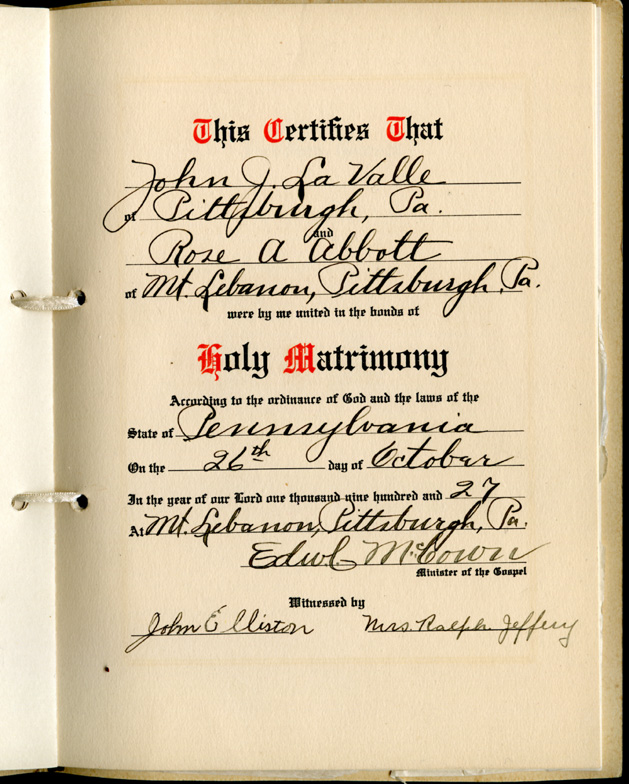 This Certifies That
John J. La Valle
of Pittsburgh, Pa.
and
Rose A Abbott
of Mt. Lebanon, Pittsburgh, Pa.
were by me united in the bonds of
Holy Matrimony
According to the ordinance of God and the laws of the
State of Pennsylvania
On the 26th day of October
In the year of our Lord one thousand nine hundred and 27
At Mt. Lebanon, Pittsburgh, Pa.
McCown
Minister of the Gospel
Witnessed by
John Elliston Mrs Ralph Jeffery